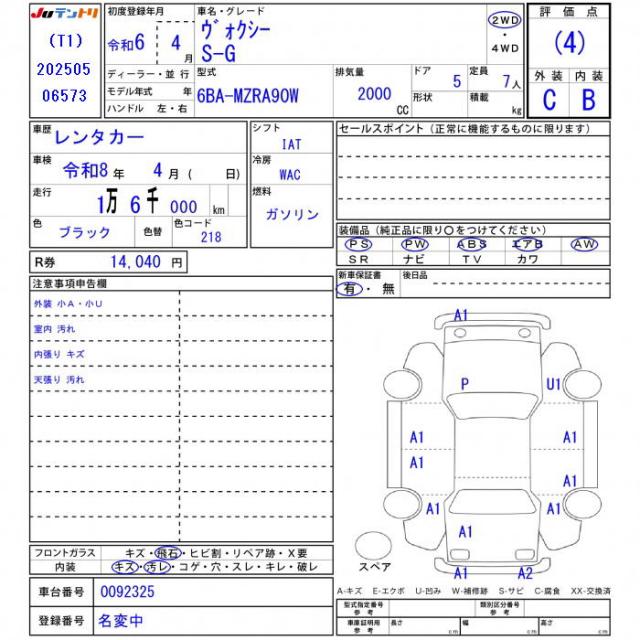 JUテントリ
(T1)
202505
06573
初度登録年月
令和6 4月
車名・グレード
ヴォクシー
S-G
2WD
・
4WD
評価点
(4)
外装 内装
C B
ディーラー・並行
モデル年式 年
ハンドル 左・右
型式
6BA-MZRA90W
排気量
2000
CC
ドア 5
形状
定員 7人
積載 kg
車歴 レンタカー
車検 令和8年 4月 ( 日)
走行 1万 6千 000 km
色 ブラック 色替 色コード 218
シフト
IAT
冷房
WAC
燃料
ガソリン
R券 14,040 円
セールスポイント(正常に機能するものに限ります)
装備品(純正品に限り〇をつけてください)
PS PW ABS エアB AW
SR ナビ TV カワ
新車保証書
有・無
後日品
注意事項申告欄
外装 小A・小U
室内 汚れ
内張り キズ
天張り 汚れ
A1
P U1
A1 A1
A1
A1 A1
A1
A1 A2
スペア
フロントガラス キズ・飛石・ヒビ割・リペア跡・X要
内装 キズ・汚レ・コゲ・穴・スレ・キレ・破レ
車台番号 0092325
登録番号 名変中
A-キズ E-エクボ U-凹み W-補修跡 S-サビ C-腐食 XX-交換済
型式指定番号 参考 類別区分番号 参考
車庫証明用 参考 長さ cm 幅 cm 高さ cm